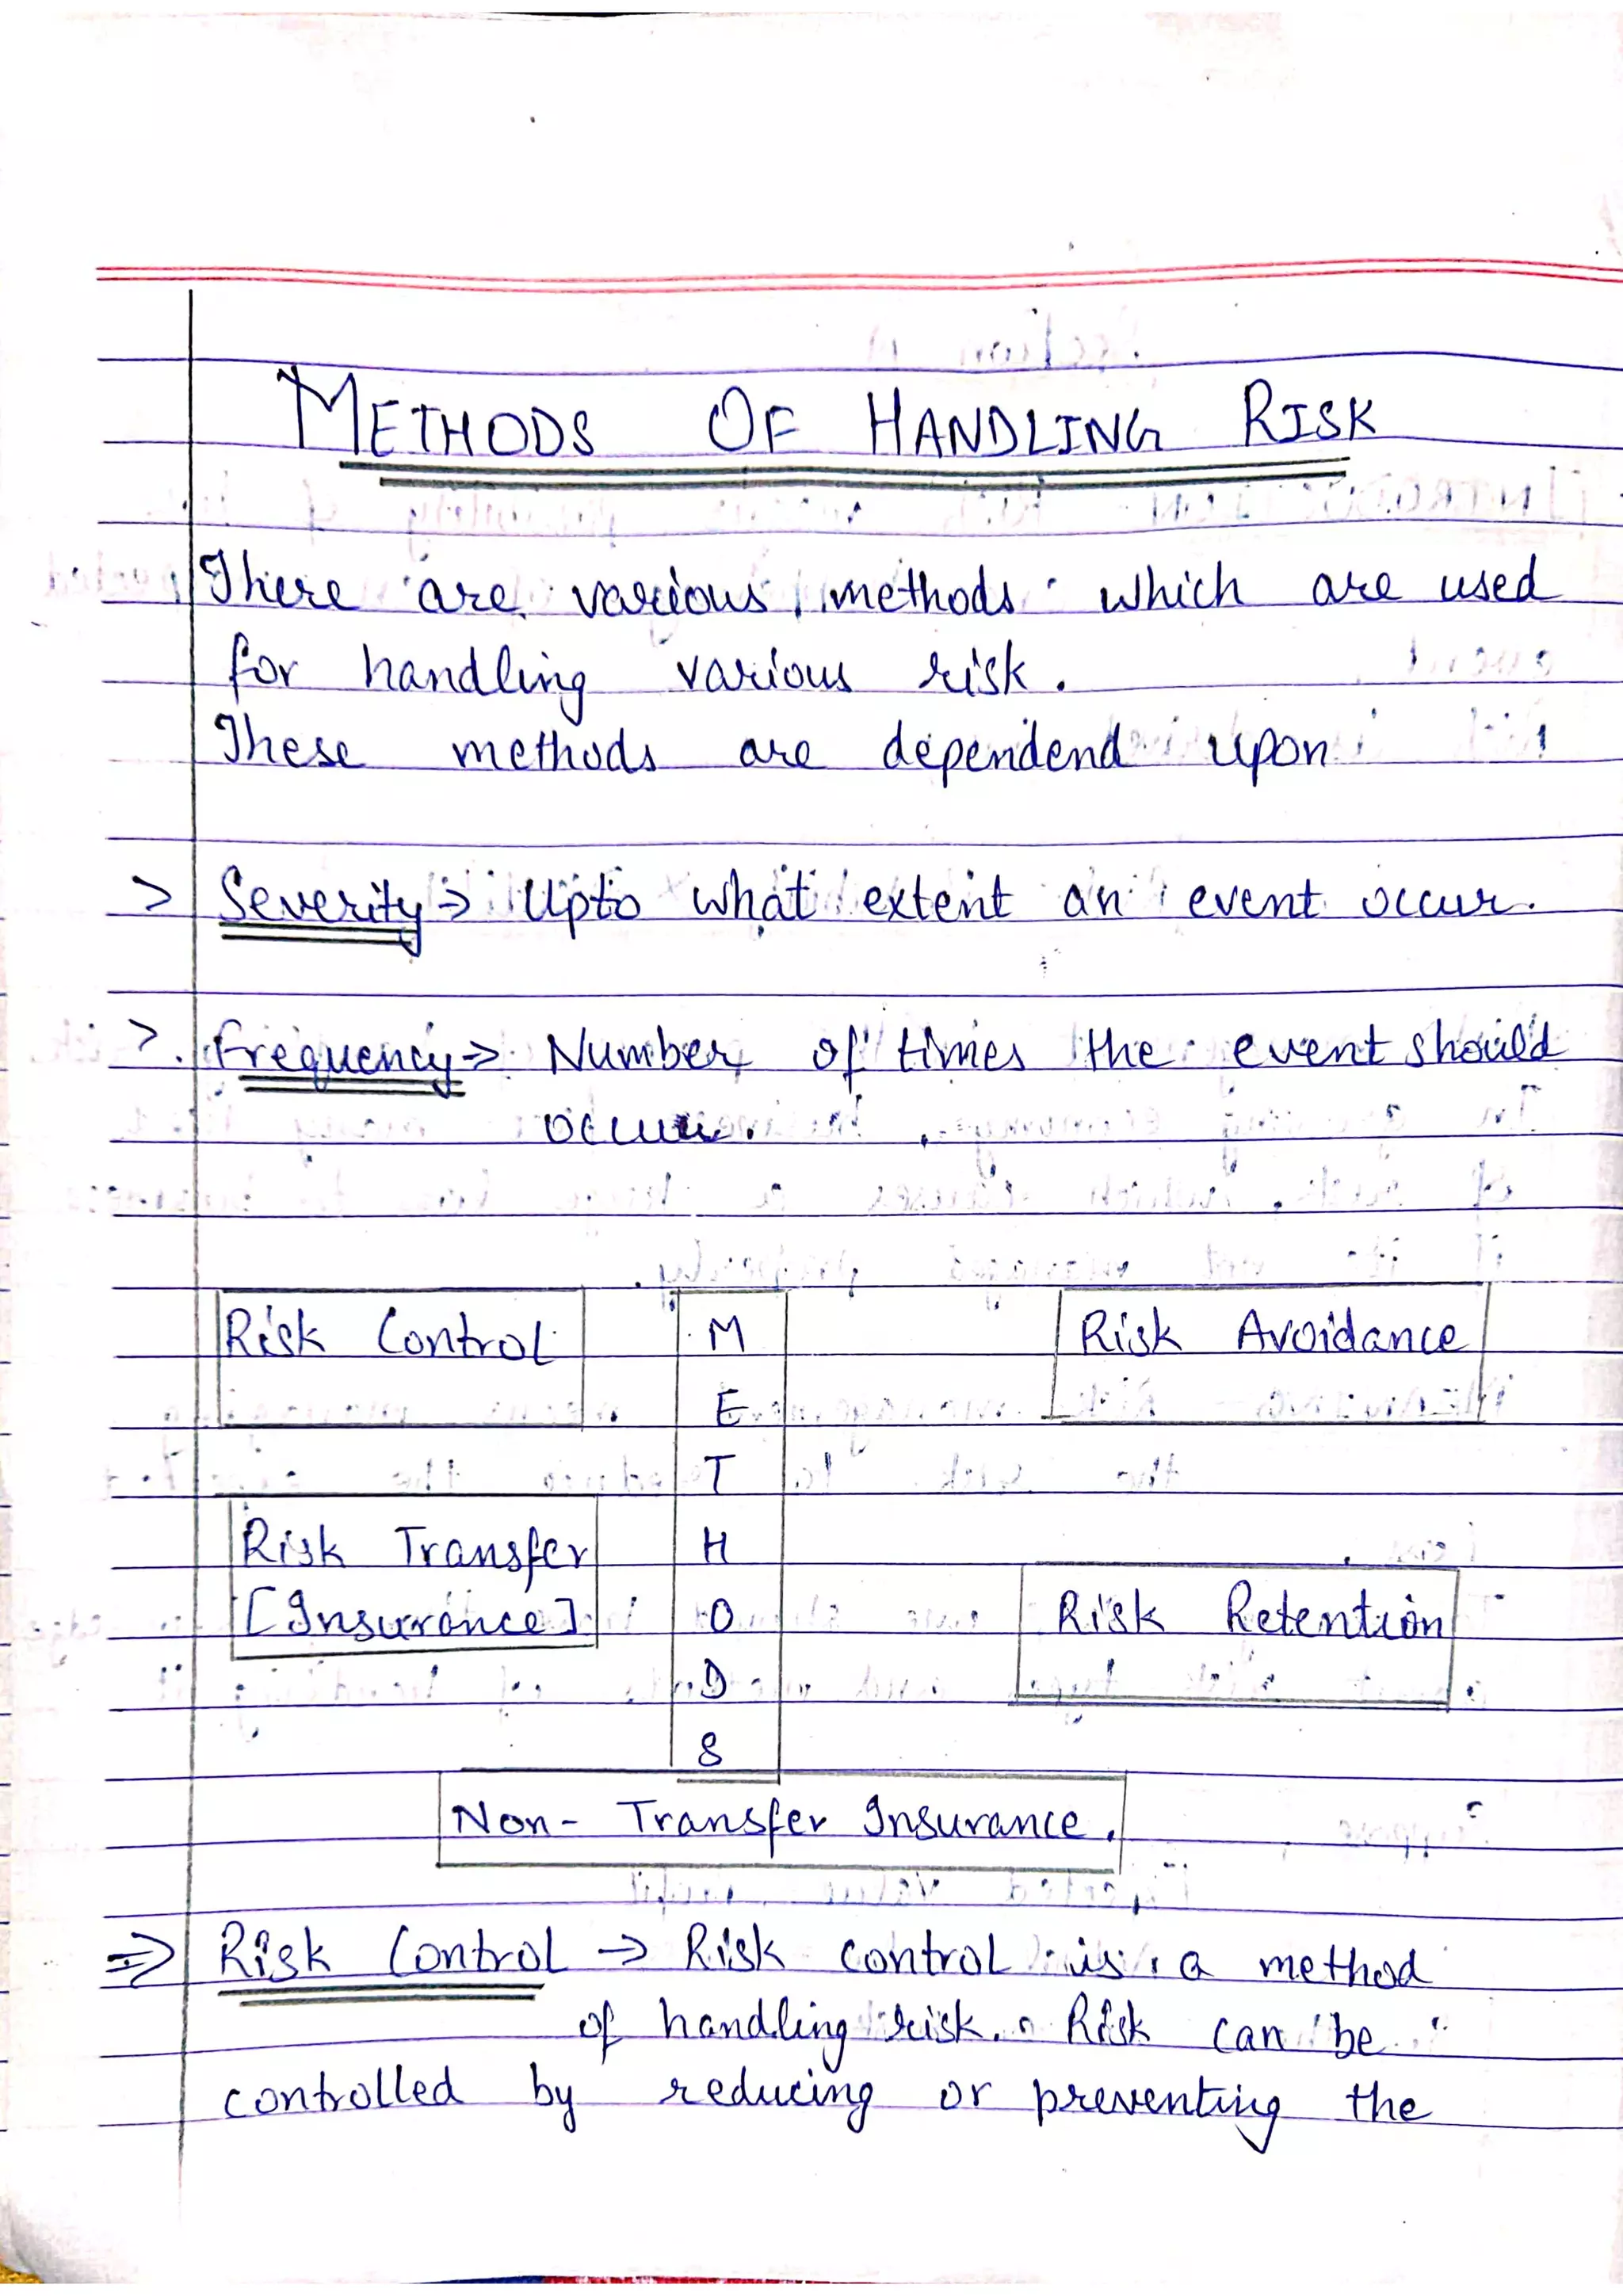 METHODS OF HANDLING RISK
There are various methods which are used
for handling various risk.
These methods are dependend upon
> Severity → Upto what extent an event occur.
> Frequency → Number of times the event should
occur.
Risk Control
Risk Avoidance
Risk Transfer
[Insurance]
Risk Retention
M
E
T
H
O
D
S
Non- Transfer Insurance.
⇒ Risk Control → Risk control is a method
of handling risk. Risk can be
controlled by reducing or preventing the